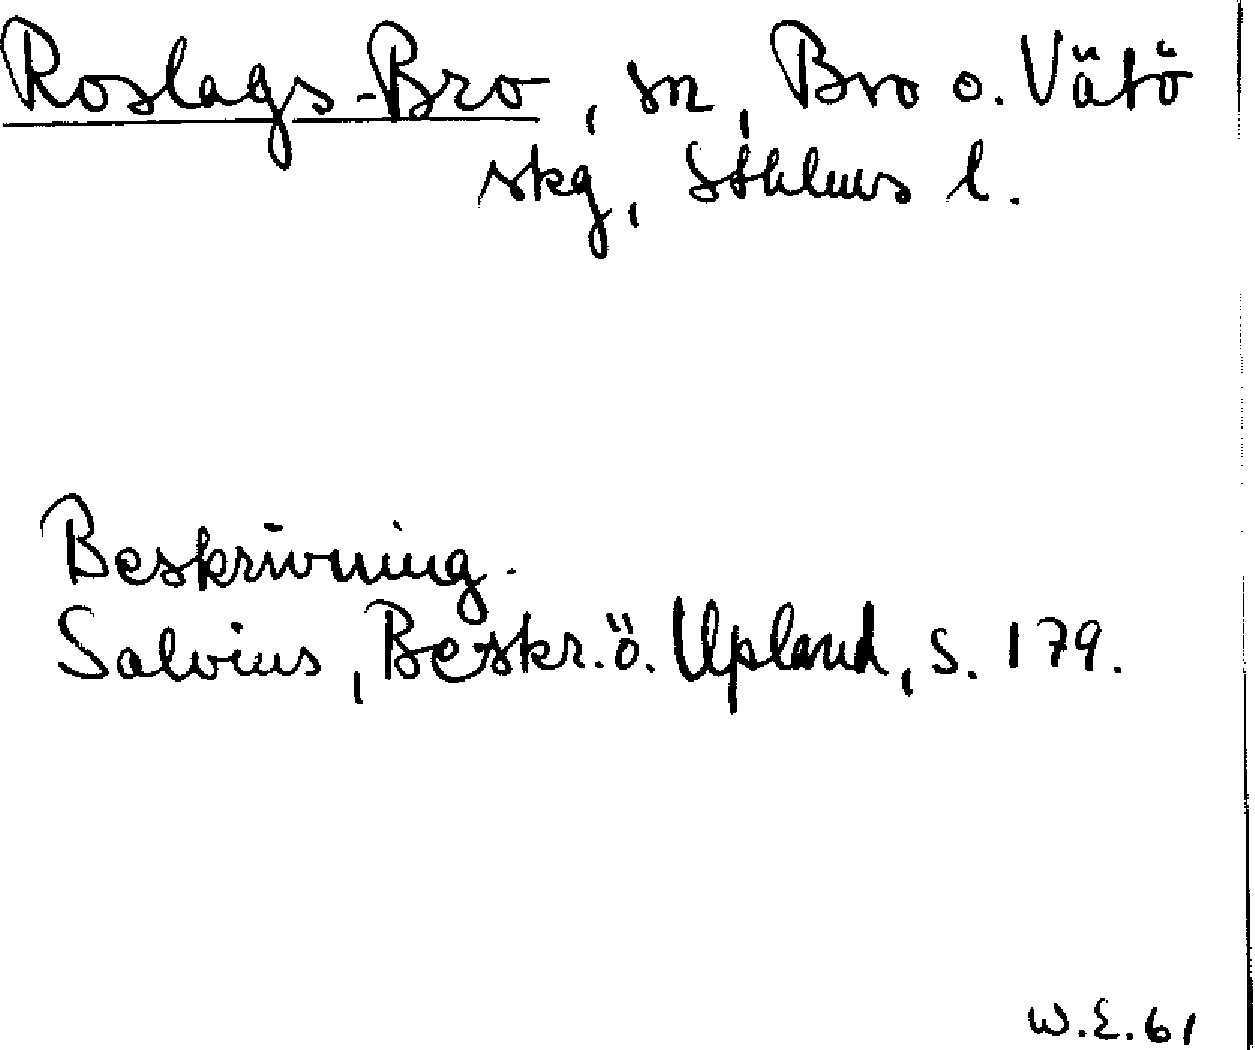 Roslags-Bro, sn, Bro o. Vätö
skg, Sthlms l.
Beskrivning.
Salvius, Beskr. ö. Upland, s. 179.
W.E. 61